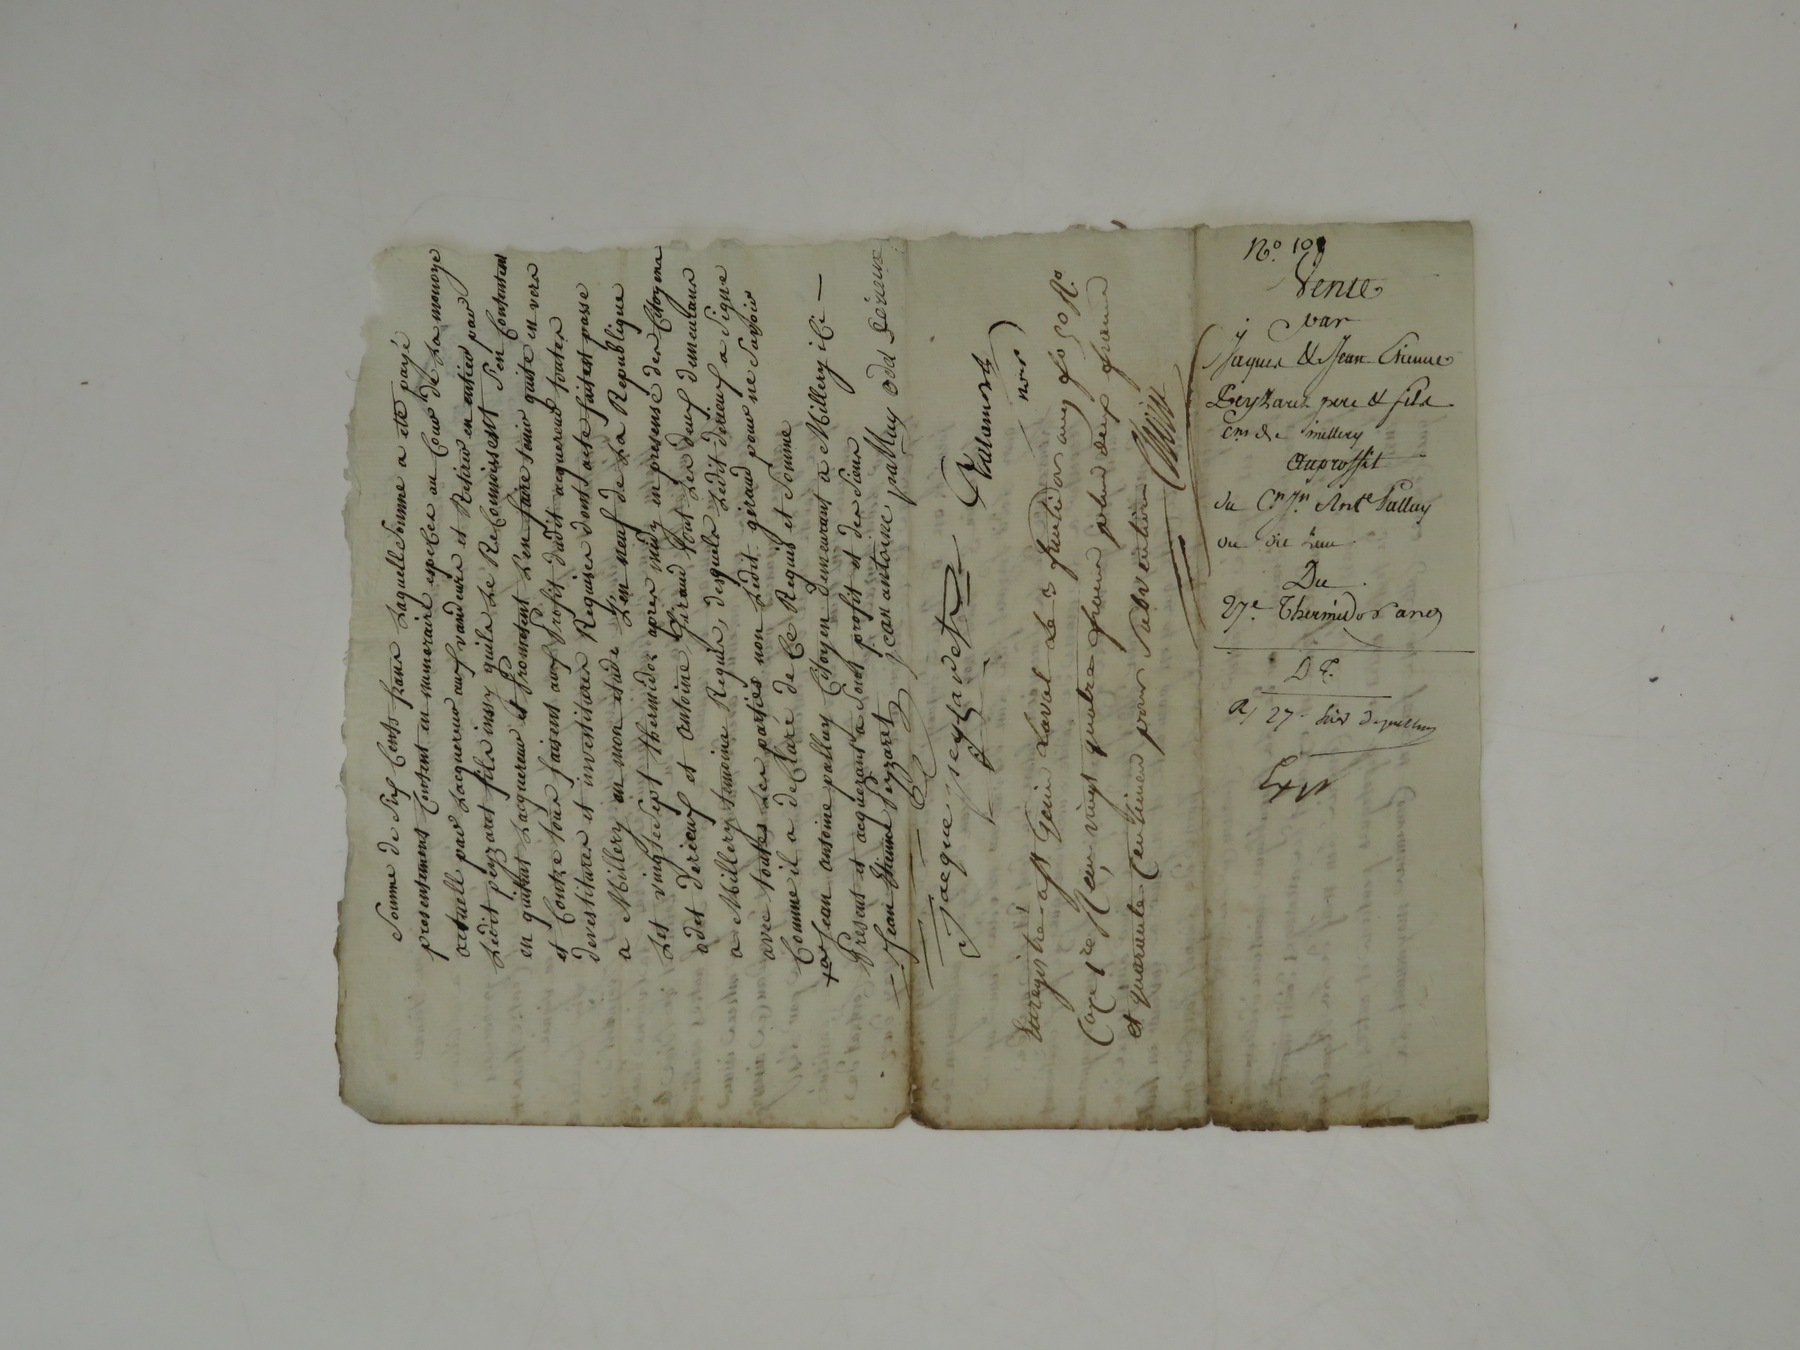 Somme de Six Cents frans Laquelle Somme a eté payé
presentement Contant en numeraire espeCes au Cour de La monoye
actuelle par Lacquereur aux vandeurs et Retiré en entier par
Ledit peyzaret fils insy quils Le ReConnoissent S'en Contentent
en quittent Lacquereur et Promettent L'en faire tenir quite en vers
et Contre tous faisent aux Profit dudit acquereur toutes
devestitures et investitures Requises dont acte fait et passe
a Millery en mon etude L'en neuf de La Republique
Les vingt Sept thermidor apres midy en presense des Citoyens
odet derieux et antoine Giraud tout Les deux demeurans
a Millery temoins Requis, desquels Ledit derieux a Signe
avec toutes Les parties non Ledit giraud pour ne Savoir
Comme il a deClaré de Ce Requis et Somme
Jean antoine palluy Citoyen demeurant a Millery iCi —
Present et acquerant a Son profit et des Siens
Jean Etienne Peyzaret jean antoine palluy odet derieux
jacque peyzaret
Enregistré a St Genis Laval Le 3 fructidor an 9 fo 50 Ro
Case 1re Reçu vingt quatre francs plus deux francs
et quarante Centimes pour Subvention
No. 19
Vente
par
Jaques & Jean Etienne
Peyzaret pere & fils
Cns de millery
Au proffit
du Cn Jn Ante Palluy
du dit Lieu
Du
27e Thermidor an 9
27
Exp